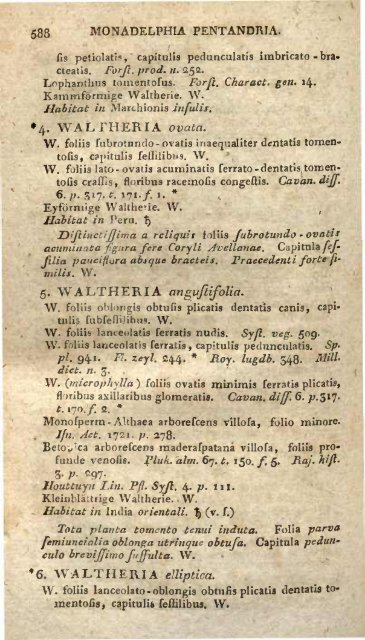 588 MONADELPHIA PENTANDRIA.
sis petiolatis, capitulis pedunculatis imbricato-bra-
cteatis. Forſt. prod. n. 252.
Lophanthus tomentoſus. Forſt. Charact. gen. 14.
Kammförmige Waltherie. W.
Habitat in Marchionis inſulis.
*4. WALTHERIA ovata.
W. foliis ſubrotundo-ovatis inaequaliter dentatis tomen-
toſis, capitulis ſeſſilibus. W.
W. foliis lato-ovatis acuminatis ſerrato-dentatis tomen-
toſis craſſis, floribus racemoſis congeſtis. Cavan. diſſ.
6. p. 317. t. 171. f. 1. *
Eyförmige Waltherie. W.
Habitat in Peru. ♄
Diſtinctiſſima a reliquis foliis ſubrotundo-ovatis
acuminata figura fere Coryli Avellanae. Capitula ſeſ-
ſilia pauciflora absque bracteis. Praecedenti forte ſi-
milis. W.
5. WALTHERIA anguſtifolia.
W. foliis oblongis obtuſis plicatis dentatis canis, capi-
tulis ſubſeſſilibus. W.
W. foliis lanceolatis ſerratis nudis. Syſt. veg. 509.
W. foliis lanceolatis ſerratis, capitulis pedunculatis. Sp.
pl. 941. Fl. zeyl. 244. * Roy. lugdb. 348. Mill.
dict. n. 3.
W. (microphylla) foliis ovatis minimis ſerratis plicatis,
floribus axillaribus glomeratis. Cavan. diſſ. 6. p. 317.
t. 170. f. 2. *
Monoſperm-Althaea arboreſcens villoſa, folio minore.
Iſn. Act. 1721. p. 278.
Betonica arboreſcens maderaſpatana villoſa, foliis pro-
funde venoſis. Pluk. alm. 67. t. 150. f. 5. Raj. hiſt.
3. p. 297.
Houttuyn Lin. Pfl. Syſt. 4. p. 111.
Kleinblättrige Waltherie. W.
Habitat in India orientali. ♄ (v. ſ.)
Tota planta tomento tenui induta. Folia parva
ſemiuncialia oblonga utrinque obtuſa. Capitula pedun-
culo breviſſimo ſuffulta. W.
*6. WALTHERIA elliptica.
W. foliis lanceolato-oblongis obtuſis plicatis dentatis to-
mentoſis, capitulis ſeſſilibus. W.